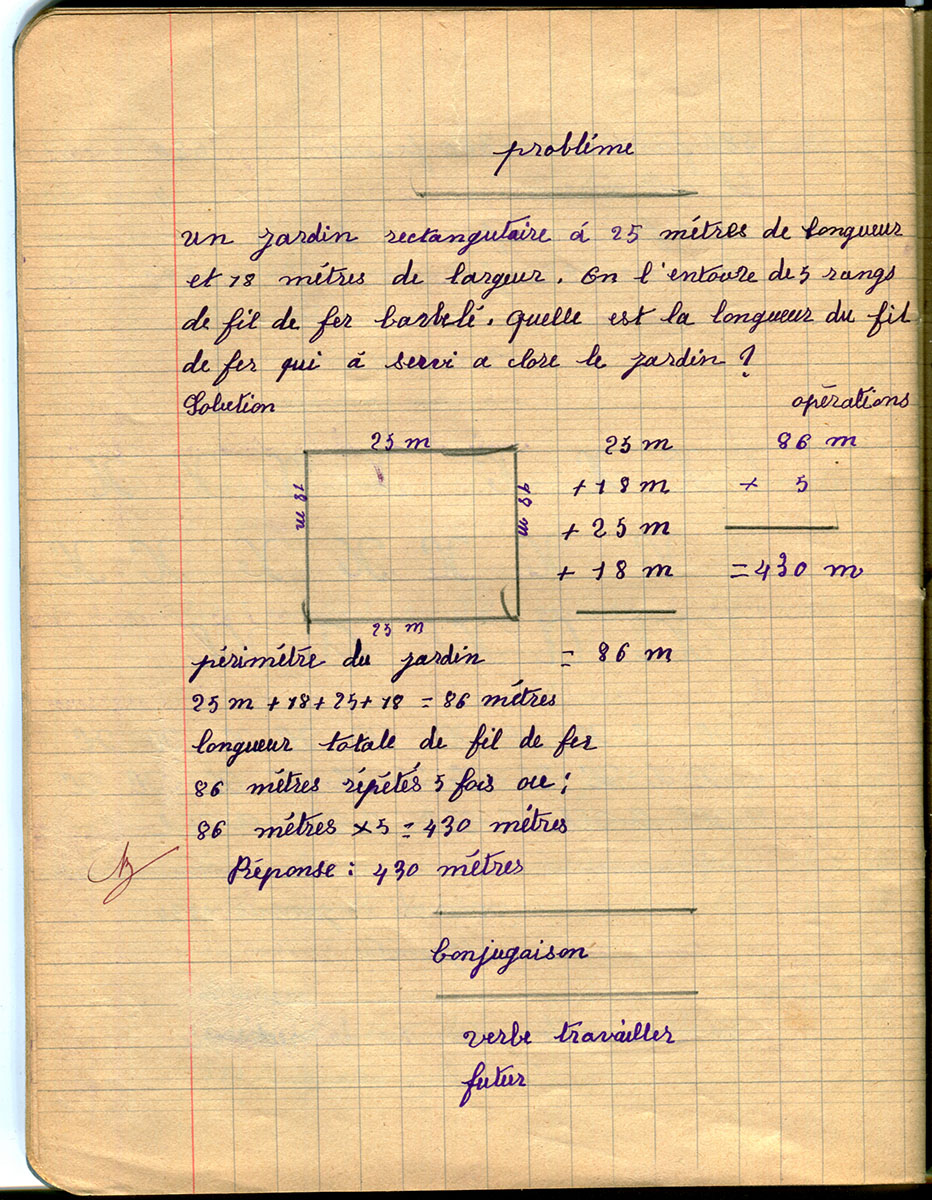 probléme
un jardin rectangulaire á 25 métres de longueur
et 18 métres de largeur. On l'entoure de 5 rangs
de fil de fer barbelé. quelle est la longueur du fil
de fer qui à servi a clore le jardin ?
Solution opérations
25 m
18 m
18 m
25 m
25 m 86 m
+ 18 m × 5
+ 25 m
+ 18 m = 430 m
périmétre du jardin = 86 m
25 m + 18 + 25 + 18 = 86 métres
longueur totale de fil de fer
86 métres répétés 5 fois ou ;
86 métres × 5 = 430 métres
Réponse : 430 métres
Conjugaison
verbe travailler
futur